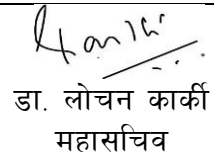 डा. लोचन कार्की
महासचिव